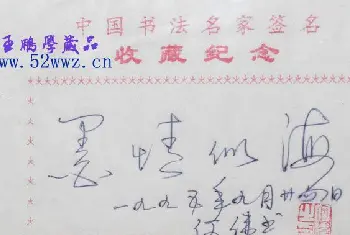 中国书法名家签名
收藏纪念
王鹏学藏品
www.52wwz.cn
墨情似海
一九九五年九月廿日